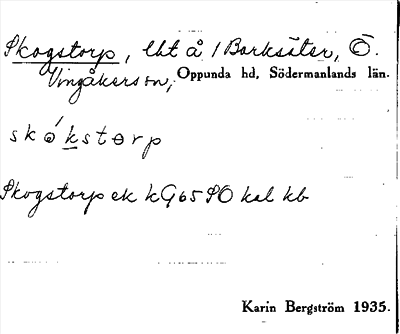 Skogstorp, lht å 1 Barksäter, Ö.
Vingåkers sn, Oppunda hd, Södermanlands län.
skɷ́kstɵrp
Skogstorp ek kG65SO kal kb
Karin Bergström 1935.